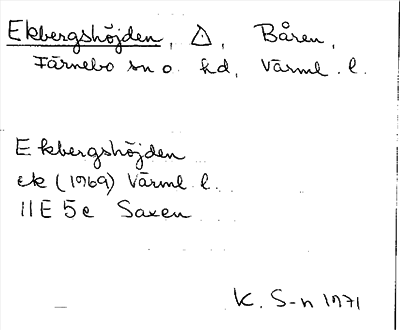 Ekbergshöjden, △, Båren,
Färnebo sn o. hd, Värml. l.
Ekbergshöjden
ek (1969) Värml. l.
11E 5e Saxen
K. S-n 1971